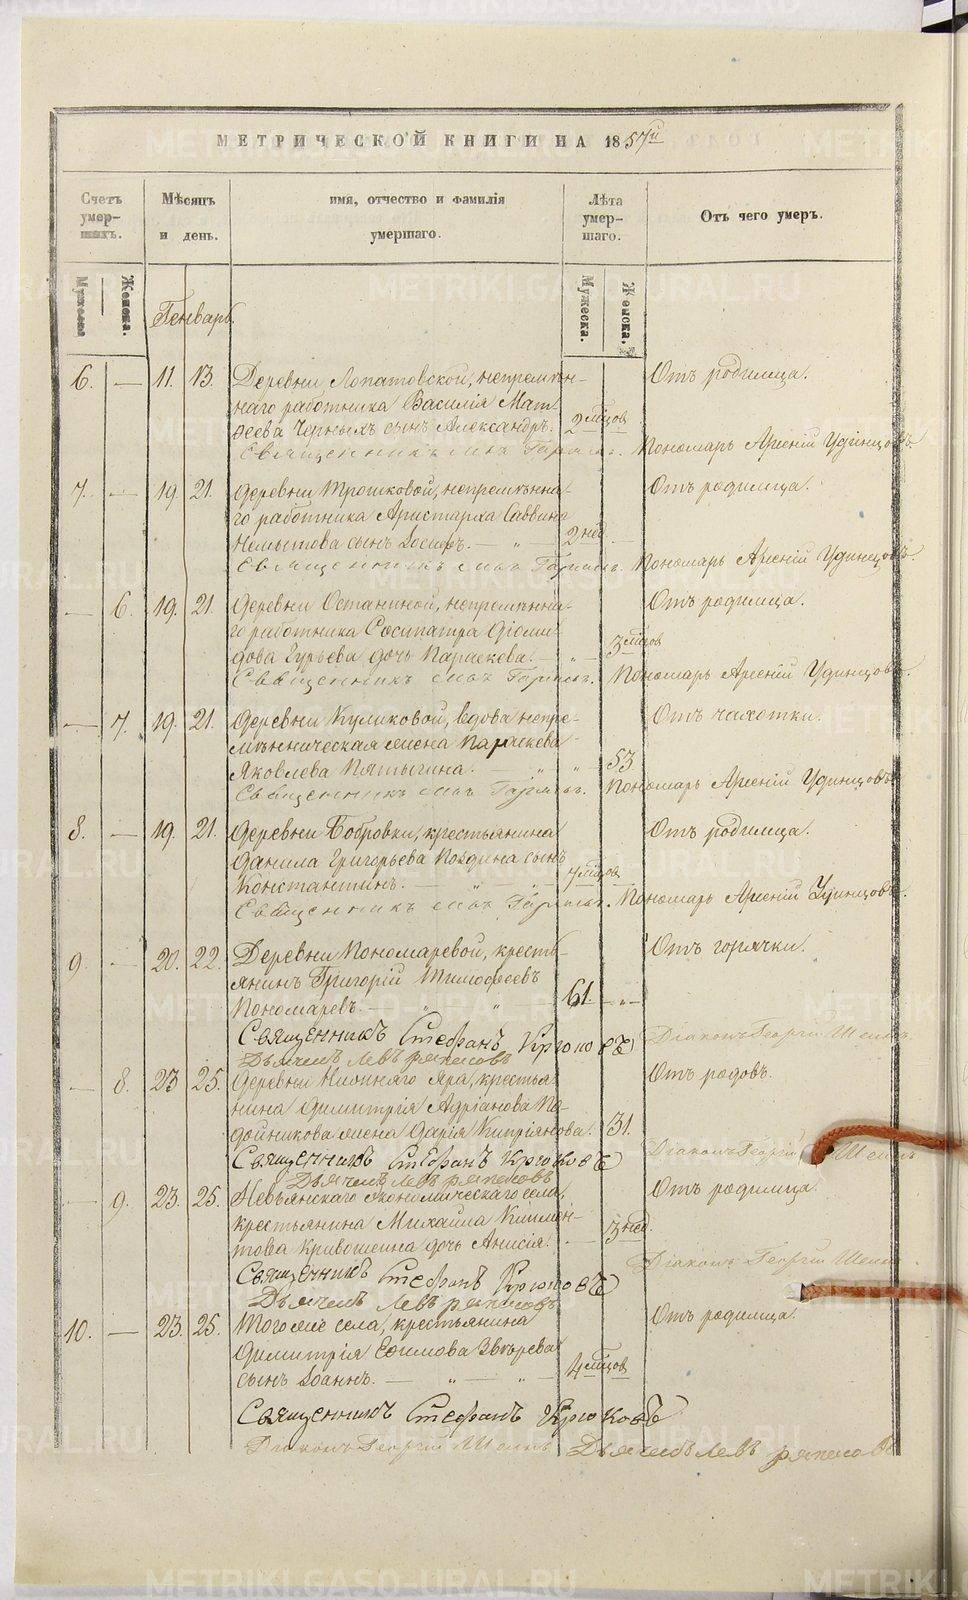 МЕТРИЧЕСКОЙ КНИГИ НА 1857й
Счетъ умер-шихъ.
Мѣсяцъ и день.
имя, отчество и фамилія умершаго.
Лѣта умер-шаго.
Отъ чего умеръ.
Мужеска. Женска.
Мужеска. Женска.
Генварь.
6. — 11. 13. Деревни Лопатовской, непремѣн- Отъ родимца.
наго работника Василія Мат-
ѳеева Черныхъ сынъ Александръ. 2 мѣцов
Священникъ Пономарь Арсеній Удинцовъ.
7. — 19. 21. Деревни Трошковой, непремѣнна- Отъ родимца.
го работника Аристарха Саввина
Немытова сынъ Іосифъ. — „ — 2 нед.
Священникъ Пономарь Арсеній Удинцовъ.
— 6. 19. 21. Деревни Останиной, непремѣнна- Отъ родимца.
го работника Сосипатра Діоми-
дова Гурьева дочь Параскева. — „ — 3 мѣцов
Священникъ Пономарь Арсеній Удинцовъ.
— 7. 19. 21. Деревни Куликовой, вдова непре- Отъ чахотки.
мѣнническая жена Параскева
Яковлева Пятыгина. — „ „ 53
Священникъ Пономарь Арсеній Удинцовъ.
8. — 19. 21. Деревни Бобровки, крестьянина Отъ родимца.
Данила Григорьева Поздина сынъ
Константинъ. — „ — „ 7 мѣцов
Священникъ Пономарь Арсеній Удинцовъ.
9. — 20. 22. Деревни Пономаревой, кресть- Отъ горячки.
янинъ Григорій Тимоѳеевъ
Пономаревъ. — „ „ — 61. — „ —
Священникъ Стефанъ Крюковъ Діаконъ Георгій
Дьячекъ Левъ
— 8. 23. 25. Деревни Нижняго Яра, крестья- Отъ родовъ.
нина Димитрія Адріанова По-
дойникова жена Дарія Кипріянова. 31.
Священникъ Стефанъ Крюковъ Діаконъ Георгій
Дьячекъ Левъ
— 9. 23. 25. Невьянскаго экономическаго села, Отъ родимца
крестьянина Михаила Климен-
това Кривошеина дочь Анисія. — 3 нед.
Діаконъ Георгій
Священникъ Стефанъ Крюковъ
Дьячекъ Левъ
10. — 23. 25. Того же села, крестьянина Отъ родимца.
Димитрія Ефимова Звѣрева
сынъ Іоаннъ. — „ — „ — 4 мѣцов
Священникъ Стефанъ Крюковъ
Діаконъ Георгій Дьячекъ Левъ
METRIKI.GASO-URAL.RU